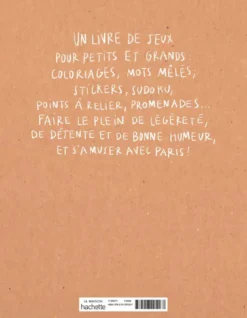 UN LIVRE DE JEUX
POUR PETITS ET GRANDS :
COLORIAGES, MOTS MÊLÉS,
STICKERS, SUDOKU,
POINTS À RELIER, PROMENADES...
FAIRE LE PLEIN DE LÉGÈRETÉ,
DE DÉTENTE ET DE BONNE HUMEUR,
ET S'AMUSER AVEC PARIS !
hachette